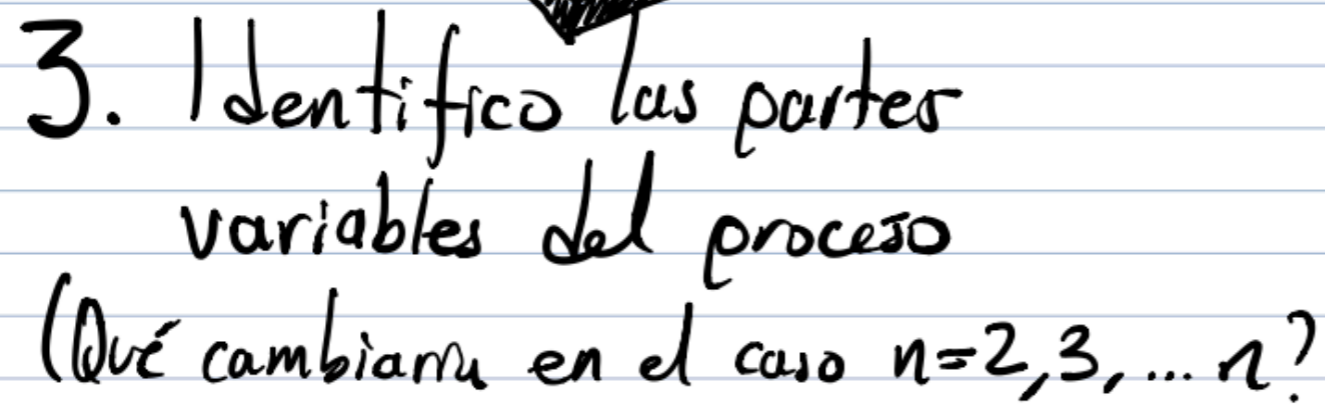 3. Identifico las partes
variables del proceso
(Qué cambiaría en el caso n=2,3,... n?